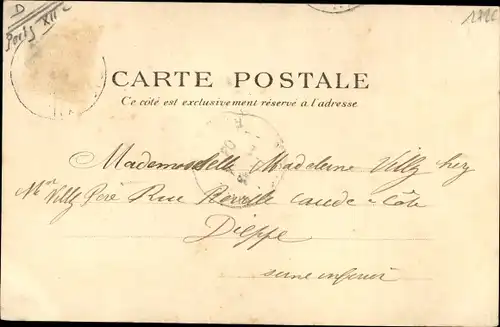 D
Paris XII
CARTE POSTALE
Ce côté est exclusivement réservé à l'adresse
Mademoiselle Madeleine Villy chez
Mr Villy Père Rue caude-Côte
Dieppe
seine inferieu